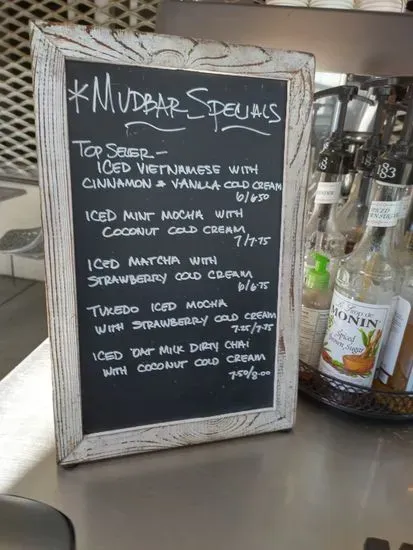 *MUDBAR SPECIALS
TOP SELLER-
ICED VIETNAMESE WITH
CINNAMON & VANILLA COLD CREAM
6/6.50
ICED MINT MOCHA WITH
COCONUT COLD CREAM
7/7.75
ICED MATCHA WITH
STRAWBERRY COLD CREAM
6/6.75
TUXEDO ICED MOCHA
WITH STRAWBERRY COLD CREAM
7.25/7.75
ICED OAT MILK DIRTY CHAI
WITH COCONUT COLD CREAM
7.50/8.00
1883
Le Sirop de
MONIN
Spiced
Brown Sugar